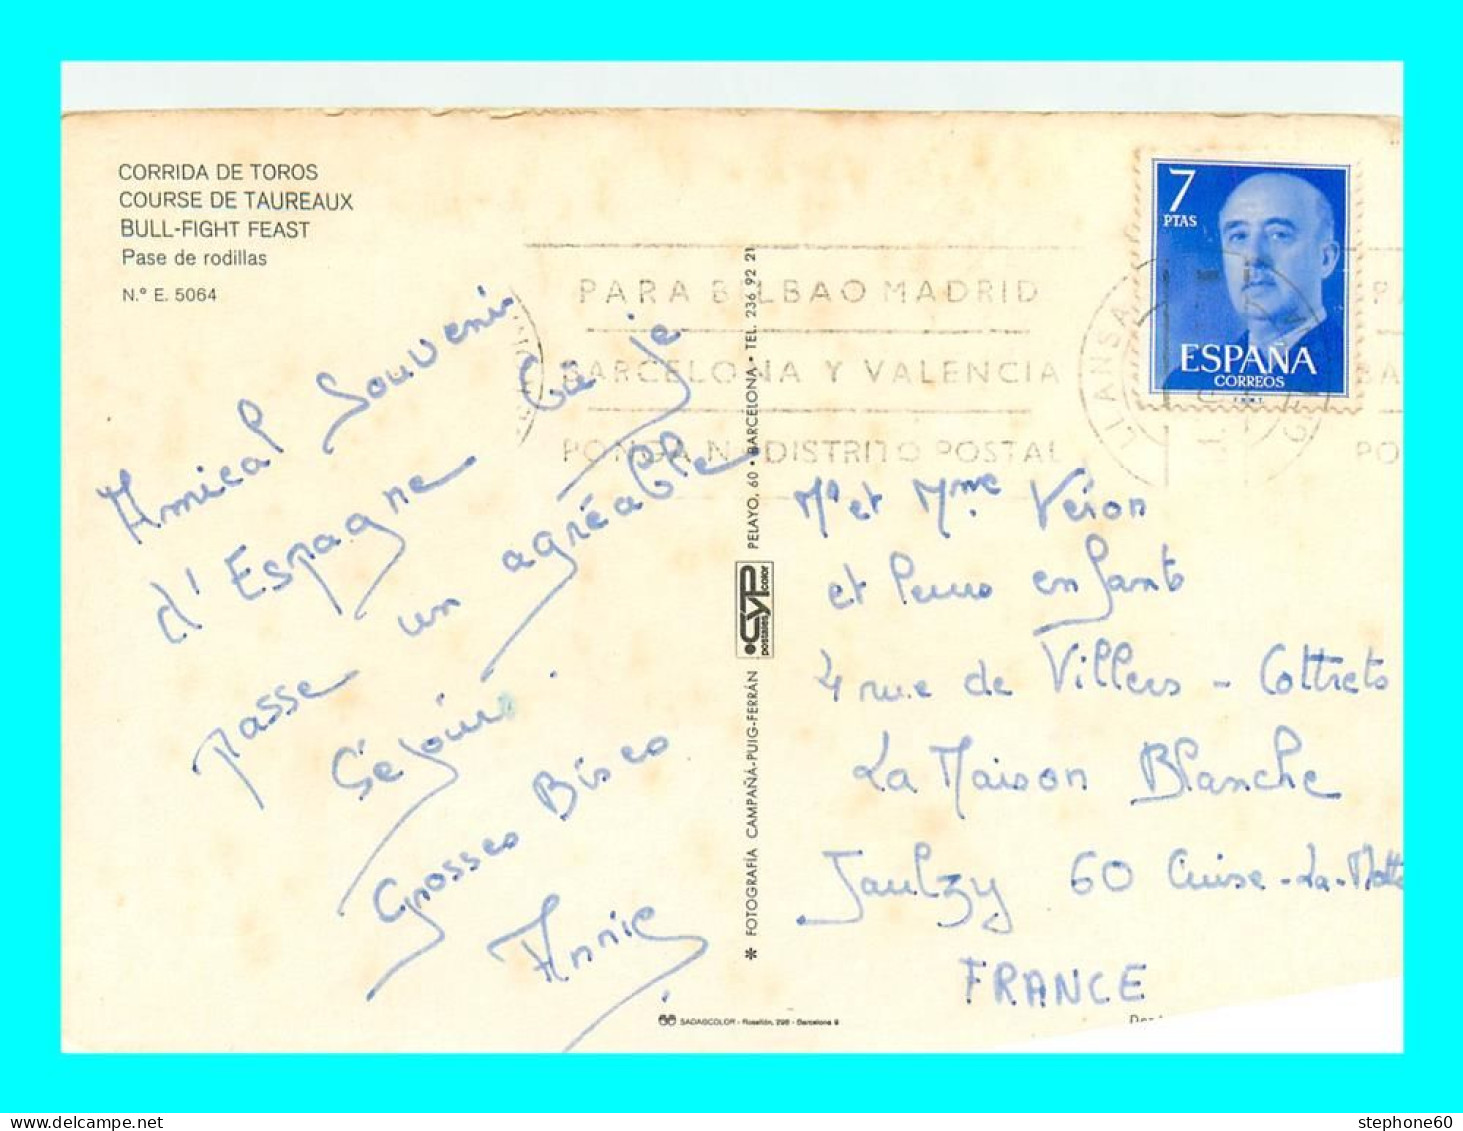 CORRIDA DE TOROS
COURSE DE TAUREAUX
BULL-FIGHT FEAST
Pase de rodillas
N.º E. 5064
7
PTAS
ESPAÑA
CORREOS
F.N.M.T.
PARA BILBAO MADRID
BARCELONA Y VALENCIA
PONGA Nº DISTRITO POSTAL
LLANSA
Amical Souvenir
d'Espagne où je
passe un agréable
Séjour.
Grosses Bises
Annie
Mr et Mme Véron
et leurs enfants
4 rue de Villers - Cottrets
La Maison Blanche
Jaulzy 60 Cuise-La-Motte
FRANCE
✻ FOTOGRAFÍA CAMPAÑÁ-PUIG-FERRÁN
CYP
postales color
PELAYO, 60 • BARCELONA • TEL. 236 92 21
SADAGCOLOR - Rosellón, 298 - Barcelona 9
stephone60